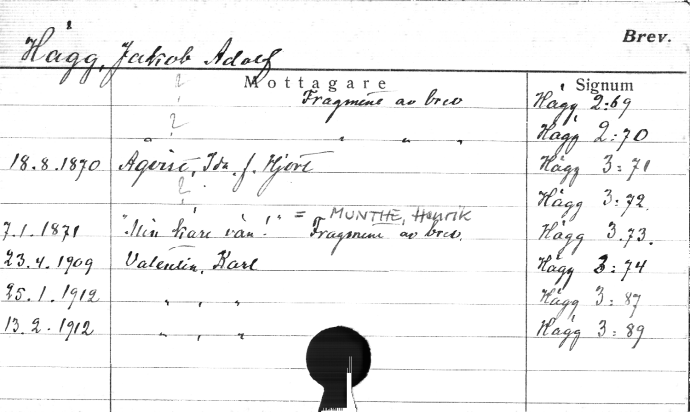 Brev.
Hägg, Jakob Adolf
Mottagare Signum
? Fragment av brev Hägg 2:69
? " " " " Hägg 2:70
18.8.1870 Aqvist, Ida f. Hjort Hägg 3:71
? Hägg 3:72.
= MUNTHE, Henrik
7.1.1871 "Min käre vän!" Fragment av brev. Hägg 3.73.
23.4.1909 Valentin, Karl Hägg 3:74
25.1.1912 " , " Hägg 3:87
13.2.1912 " , " Hägg 3:89